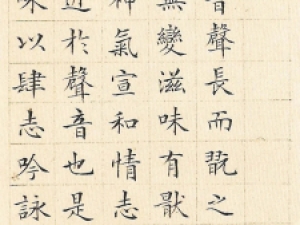 音聲長而翫之
無變滋味有猒
神氣宣和情志
近於聲音也是
以肆志吟詠